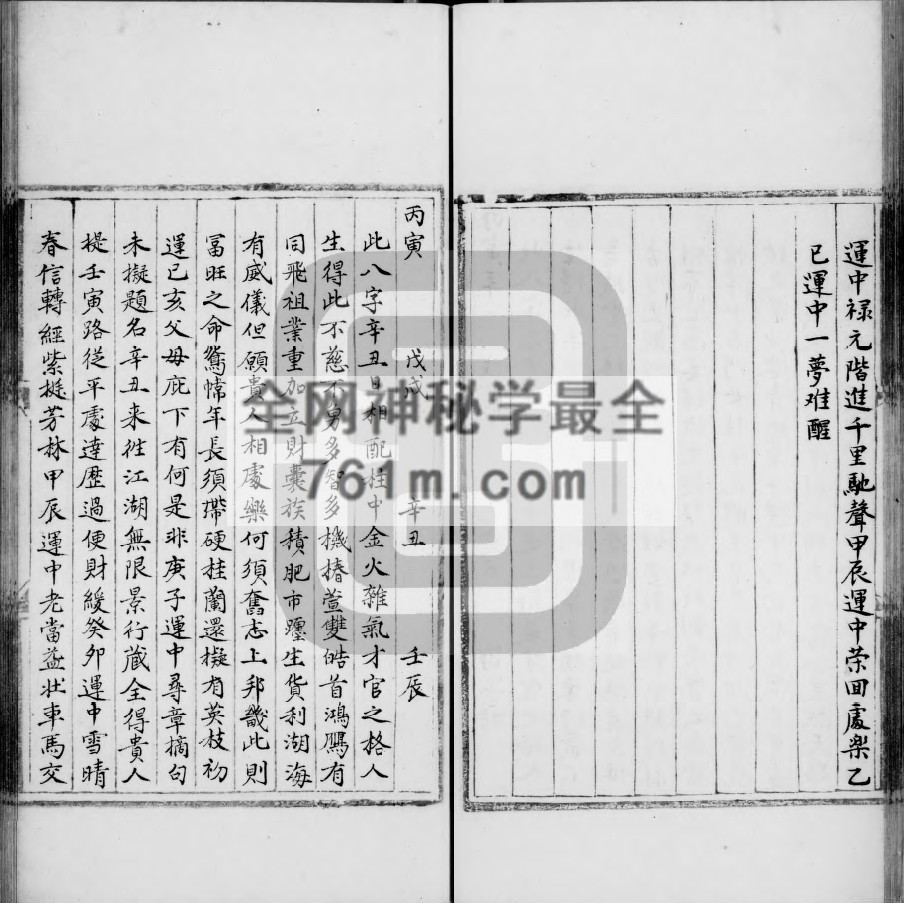 運中禄元階進千里馳聲甲辰運中荣回處樂乙
巳運中一夢难醒
丙寅 戊戌 辛丑 壬辰
此八字辛丑日相配柱中金火雜氣才官之格人
生得此不慈不勇多智多機椿萱雙皓首鴻鴈有
同飛祖業重加立財囊族積肥市廛生貨利湖海
有威儀但願貴人相處樂何須奮志上邦畿此則
冨旺之命鴛幃年長須帶硬桂蘭還擬有英枝初
運已亥父母庇下有何是非庚子運中尋章摘句
未擬題名辛丑来徃江湖無限景行藏全得貴人
提壬寅路従平處達歴過便財緩癸卯運中雪晴
春信轉經紫挺芳林甲辰運中老當益壮車馬交
全网神秘学最全
761m.com